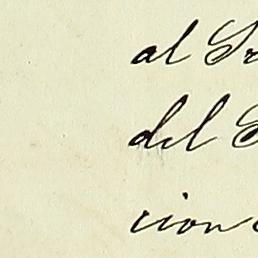 al Sr
del
cion